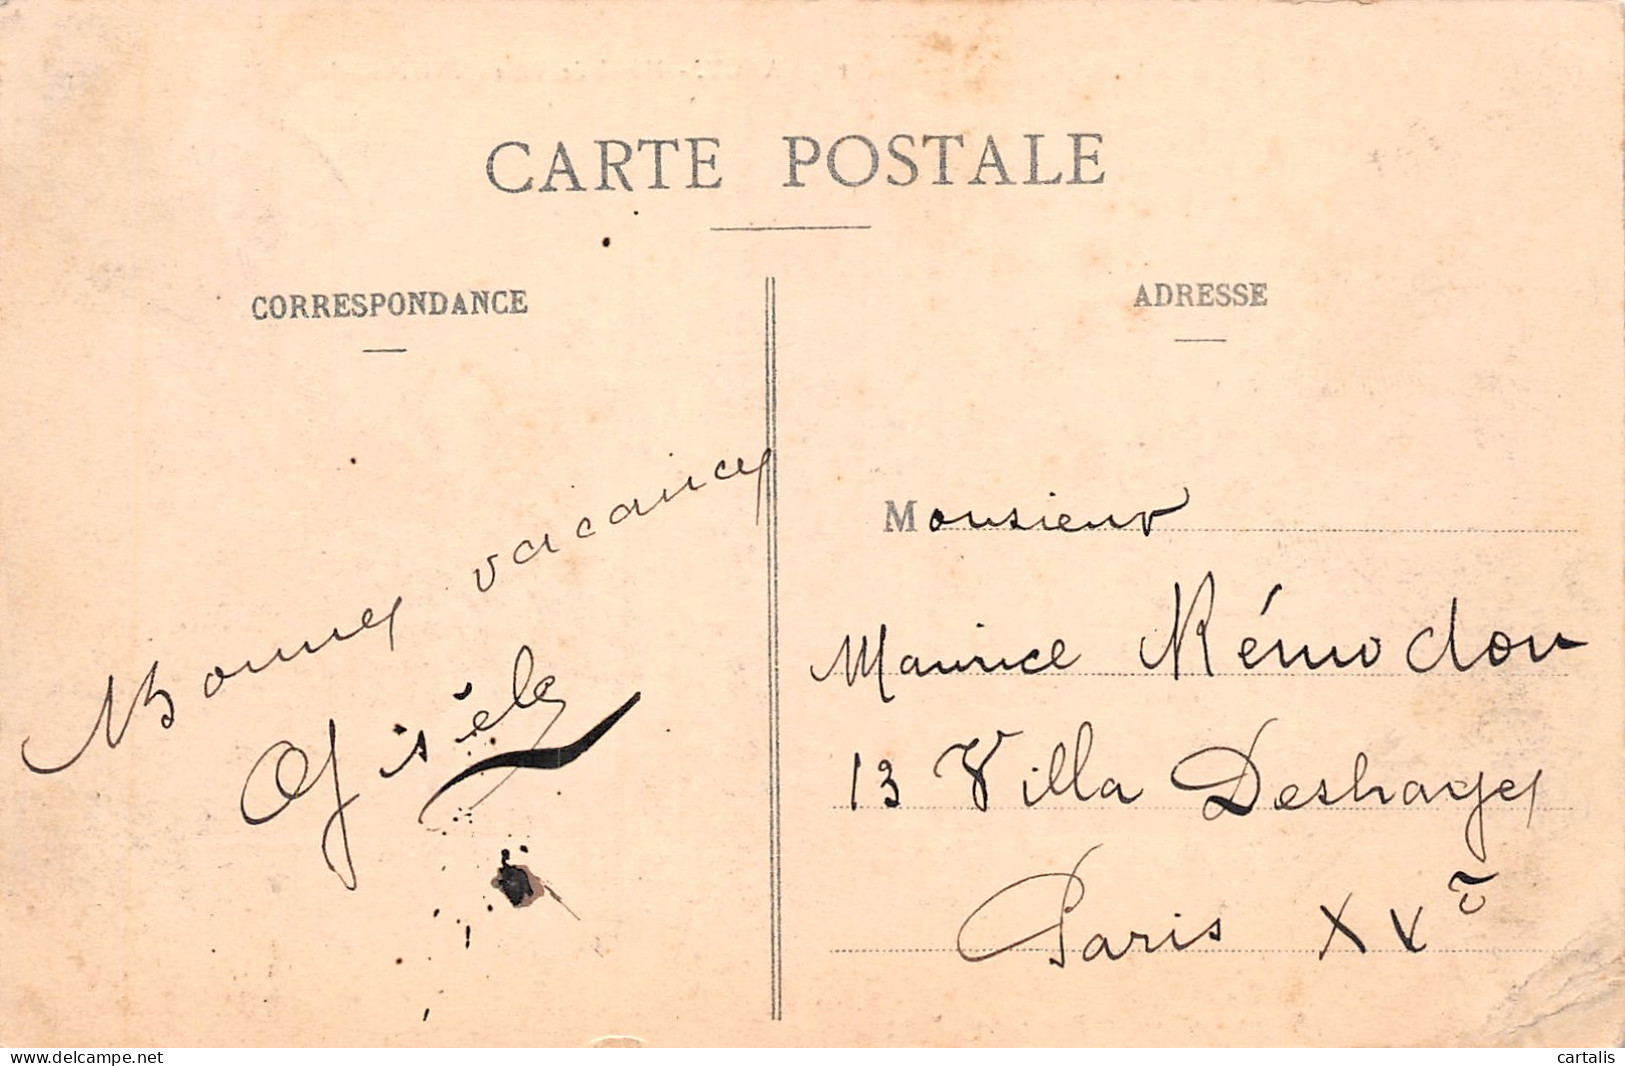 CARTE POSTALE
CORRESPONDANCE
Bonnes vacances
Gisèle
ADRESSE
Monsieur
Maurice Rémodon
13 Villa Deshayes
Paris XVe
www.delcampe.net
cartalis